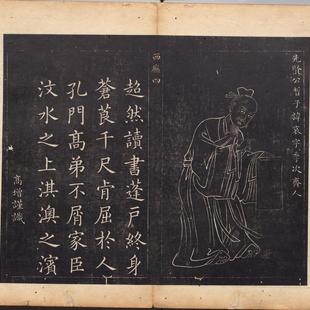 先賢公晳子諱哀字季次齊人
西廡四
超然讀書蓬戶終身
蒼莨千尺肯屈於人
孔門高弟不屑家臣
汶水之上淇澳之濱
高增謹識